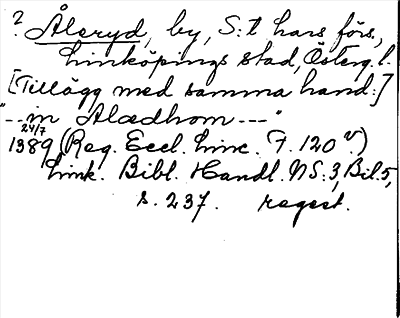 ? Ålsryd, by, S:t Lars förs.,
Linköpings stad, Österg. l.
[Tillägg med samma hand:]
"--in Alædhom---"
24/7
1389 (Reg. Eccl. Linc. F. 120 v.)
Link. Bibl. Handl. NS:3, Bil. 5,
s. 237. regest.